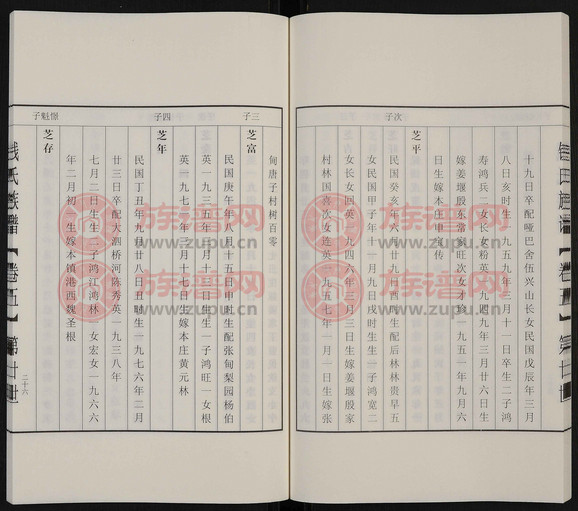 十九日卒配哑巴舍伍兴山长女民国戊辰年三月
八日亥时生一九五九年三月十一日卒生二子鸿
寿鸿兵二女长女粉英一九四九年三月廿六日生
嫁姜堰殷东常家旺次女才珍一九五一年九月六
日生嫁本庄申宝传
次子
芝平
民国癸亥年六月十九日辰时生生配后林林贵早五
女民国甲子年十一月九日戌时生生一子鸿宽二
女长女回英一九四六年三月日生嫁姜堰殷家
村林国喜次女连英一九五七年一月一日生嫁张
甸唐子村树百零
三子
芝富
民国庚午年八月十五日申时生配张甸梨园杨伯
英一九三五年三月日生生一子鸿旺一女根
英一九七年三月十七日生嫁本庄黄元林
四子
芝年
民国丁丑年九月廿八日丑时生一九七六年二月
廿三日卒配大泗桥河陈秀英一九三八年
七月二日生生二子鸿江鸿林一女宏女一九六六
年二月初一生嫁本镇港西魏圣根
憬魁子
芝存
钱氏族谱【卷五】第廿世
二十六
族谱网
www.zupu.cn
族谱网
www.zupu.cn
族谱网
www.zupu.cn
族谱网
www.zupu.cn